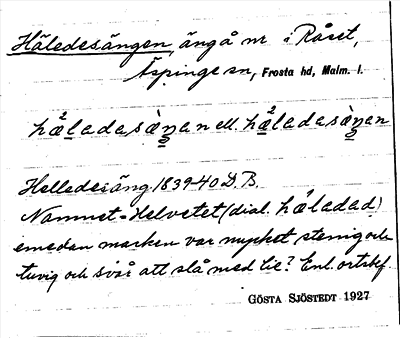 Häledesängen, ängå nr i Råset,
Äspinge sn, Frosta hd, Malm. l.
hæ²ladasàŋan ell. hæ²ladasàŋan
Helledesäng 1839-40 D.B.
Namnet = Helvetet (dial. hæ²ladad)
emedan marken var mycket stenig och
tuvig och svår att slå med lie? Enl. ortsbef.
GÖSTA SJÖSTEDT 1927